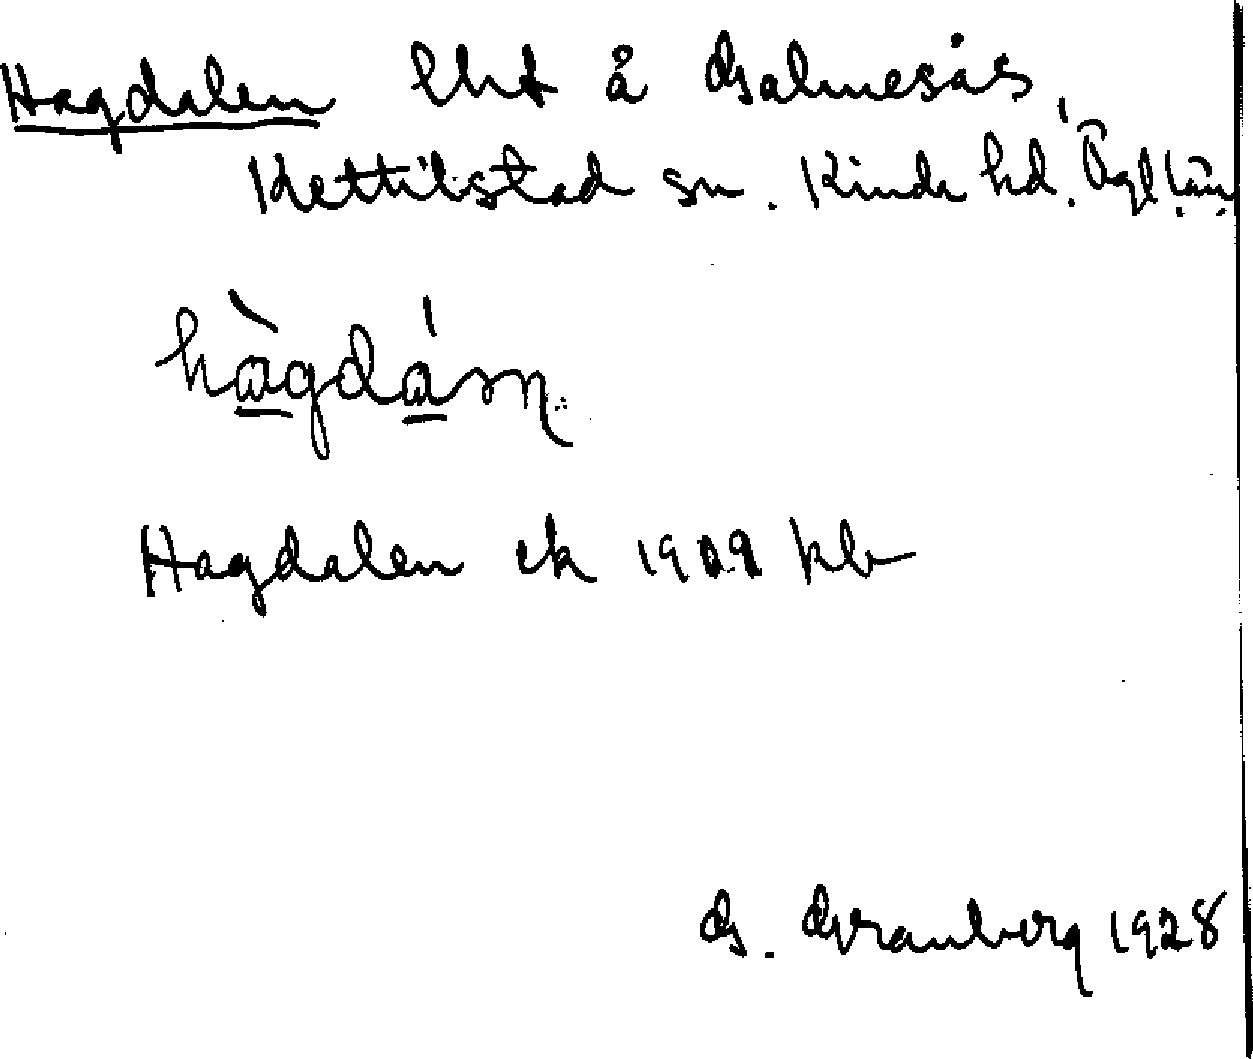 Hagdalen lht å Galmesås,
Kettilstad sn. Kinda hd. Ögl län
hàgdán
Hagdalen ek 1929 kb
G. Granberg 1928